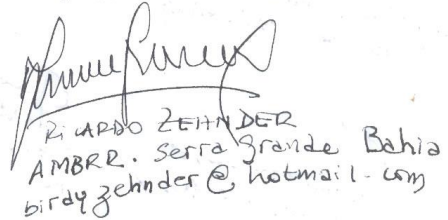 RICARDO ZEHNDER
AMBRR. Serra grande Bahia
birdyzehnder@hotmail.com